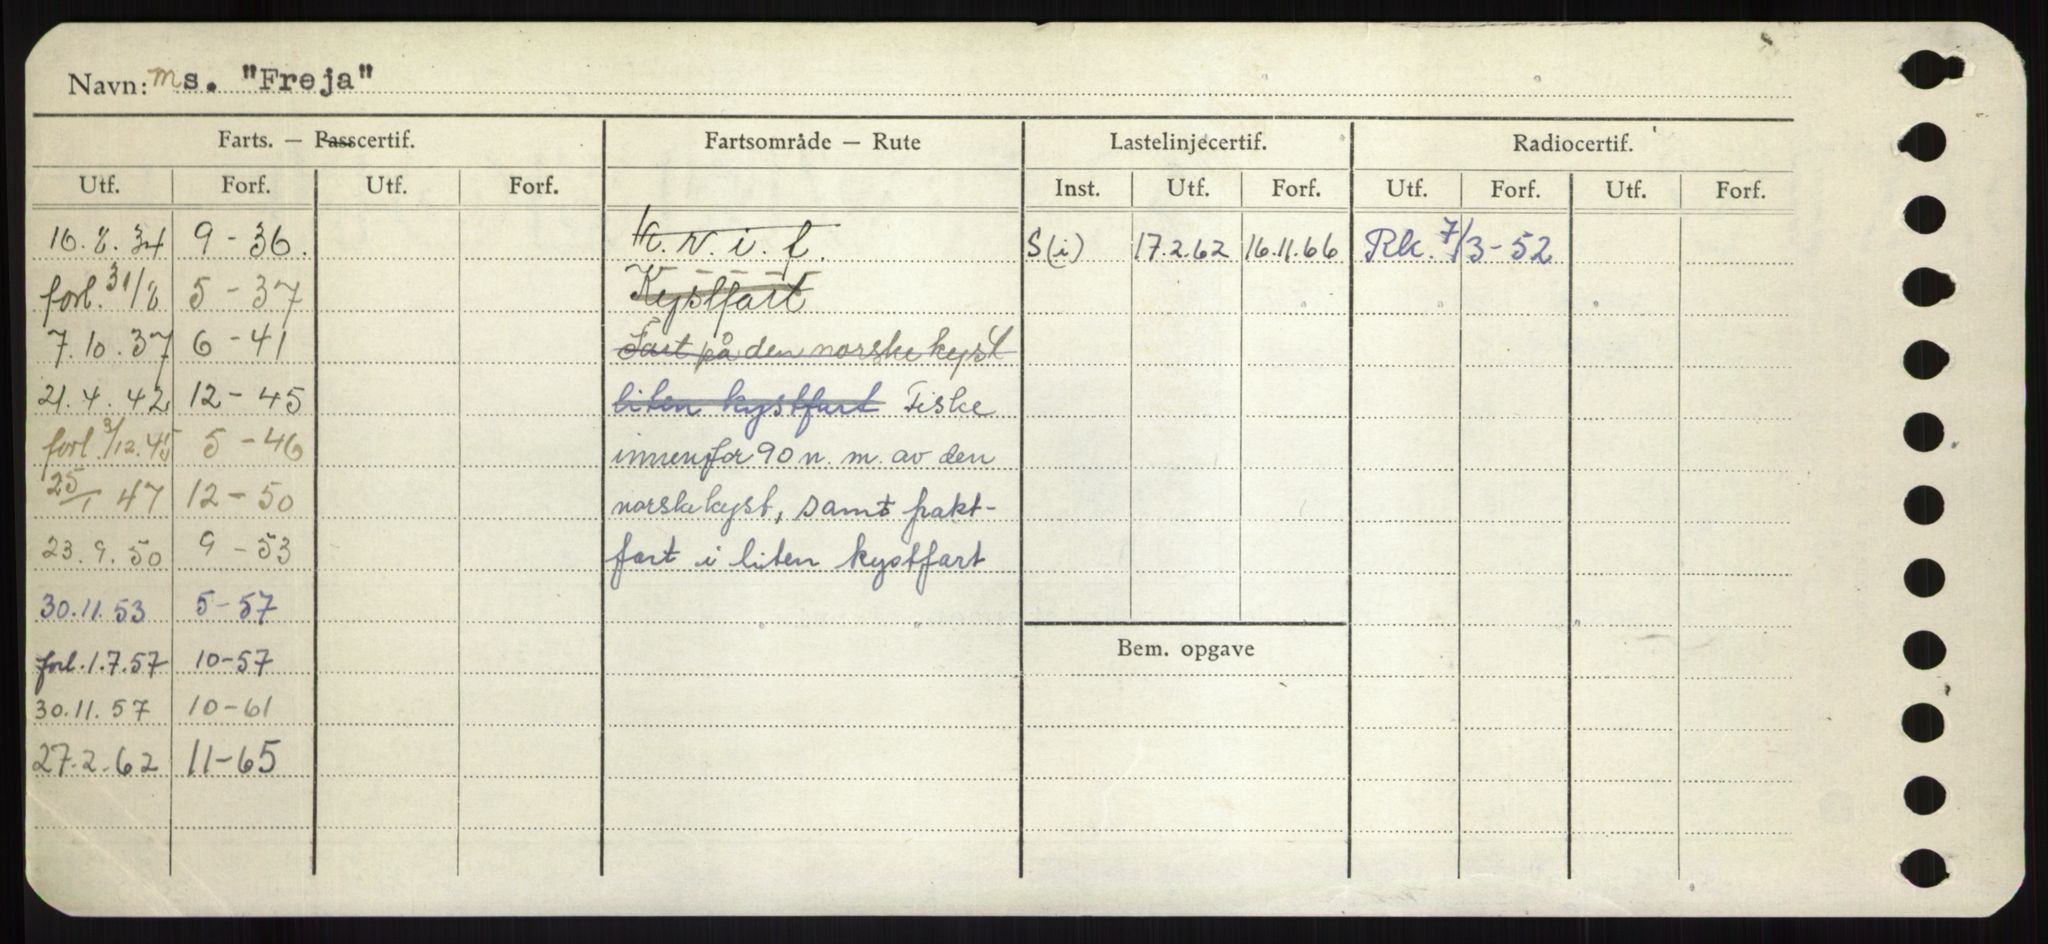 Navn: ms. "Frøja"
Farts. — Passcertif. Fartsområde — Rute Lastelinjecertif. Radiocertif.
Utf. Forf. Utf. Forf. Inst. Utf. Forf. Utf. Forf. Utf. Forf.
16.8.34 9-36. k.v.i.f. S(i) 17.2.62 16.11.66 Rk. 7/3-52
forl. 31/8 5-37 Kystfart
7.10.37 6-41 Fart på den norske kyst
21.4.42 12-45 liten kystfart Fiske
forl. 3/12.45 5-46 innenfor 90 n. m. av den
25/1 47 12-50 norske kyst, samt frakt-
23.9.50 9-53 fart i liten kystfart
30.11.53 5-57
Bem. opgave
forl. 1.7.57 10-57
30.11.57 10-61
27.2.62 11-65